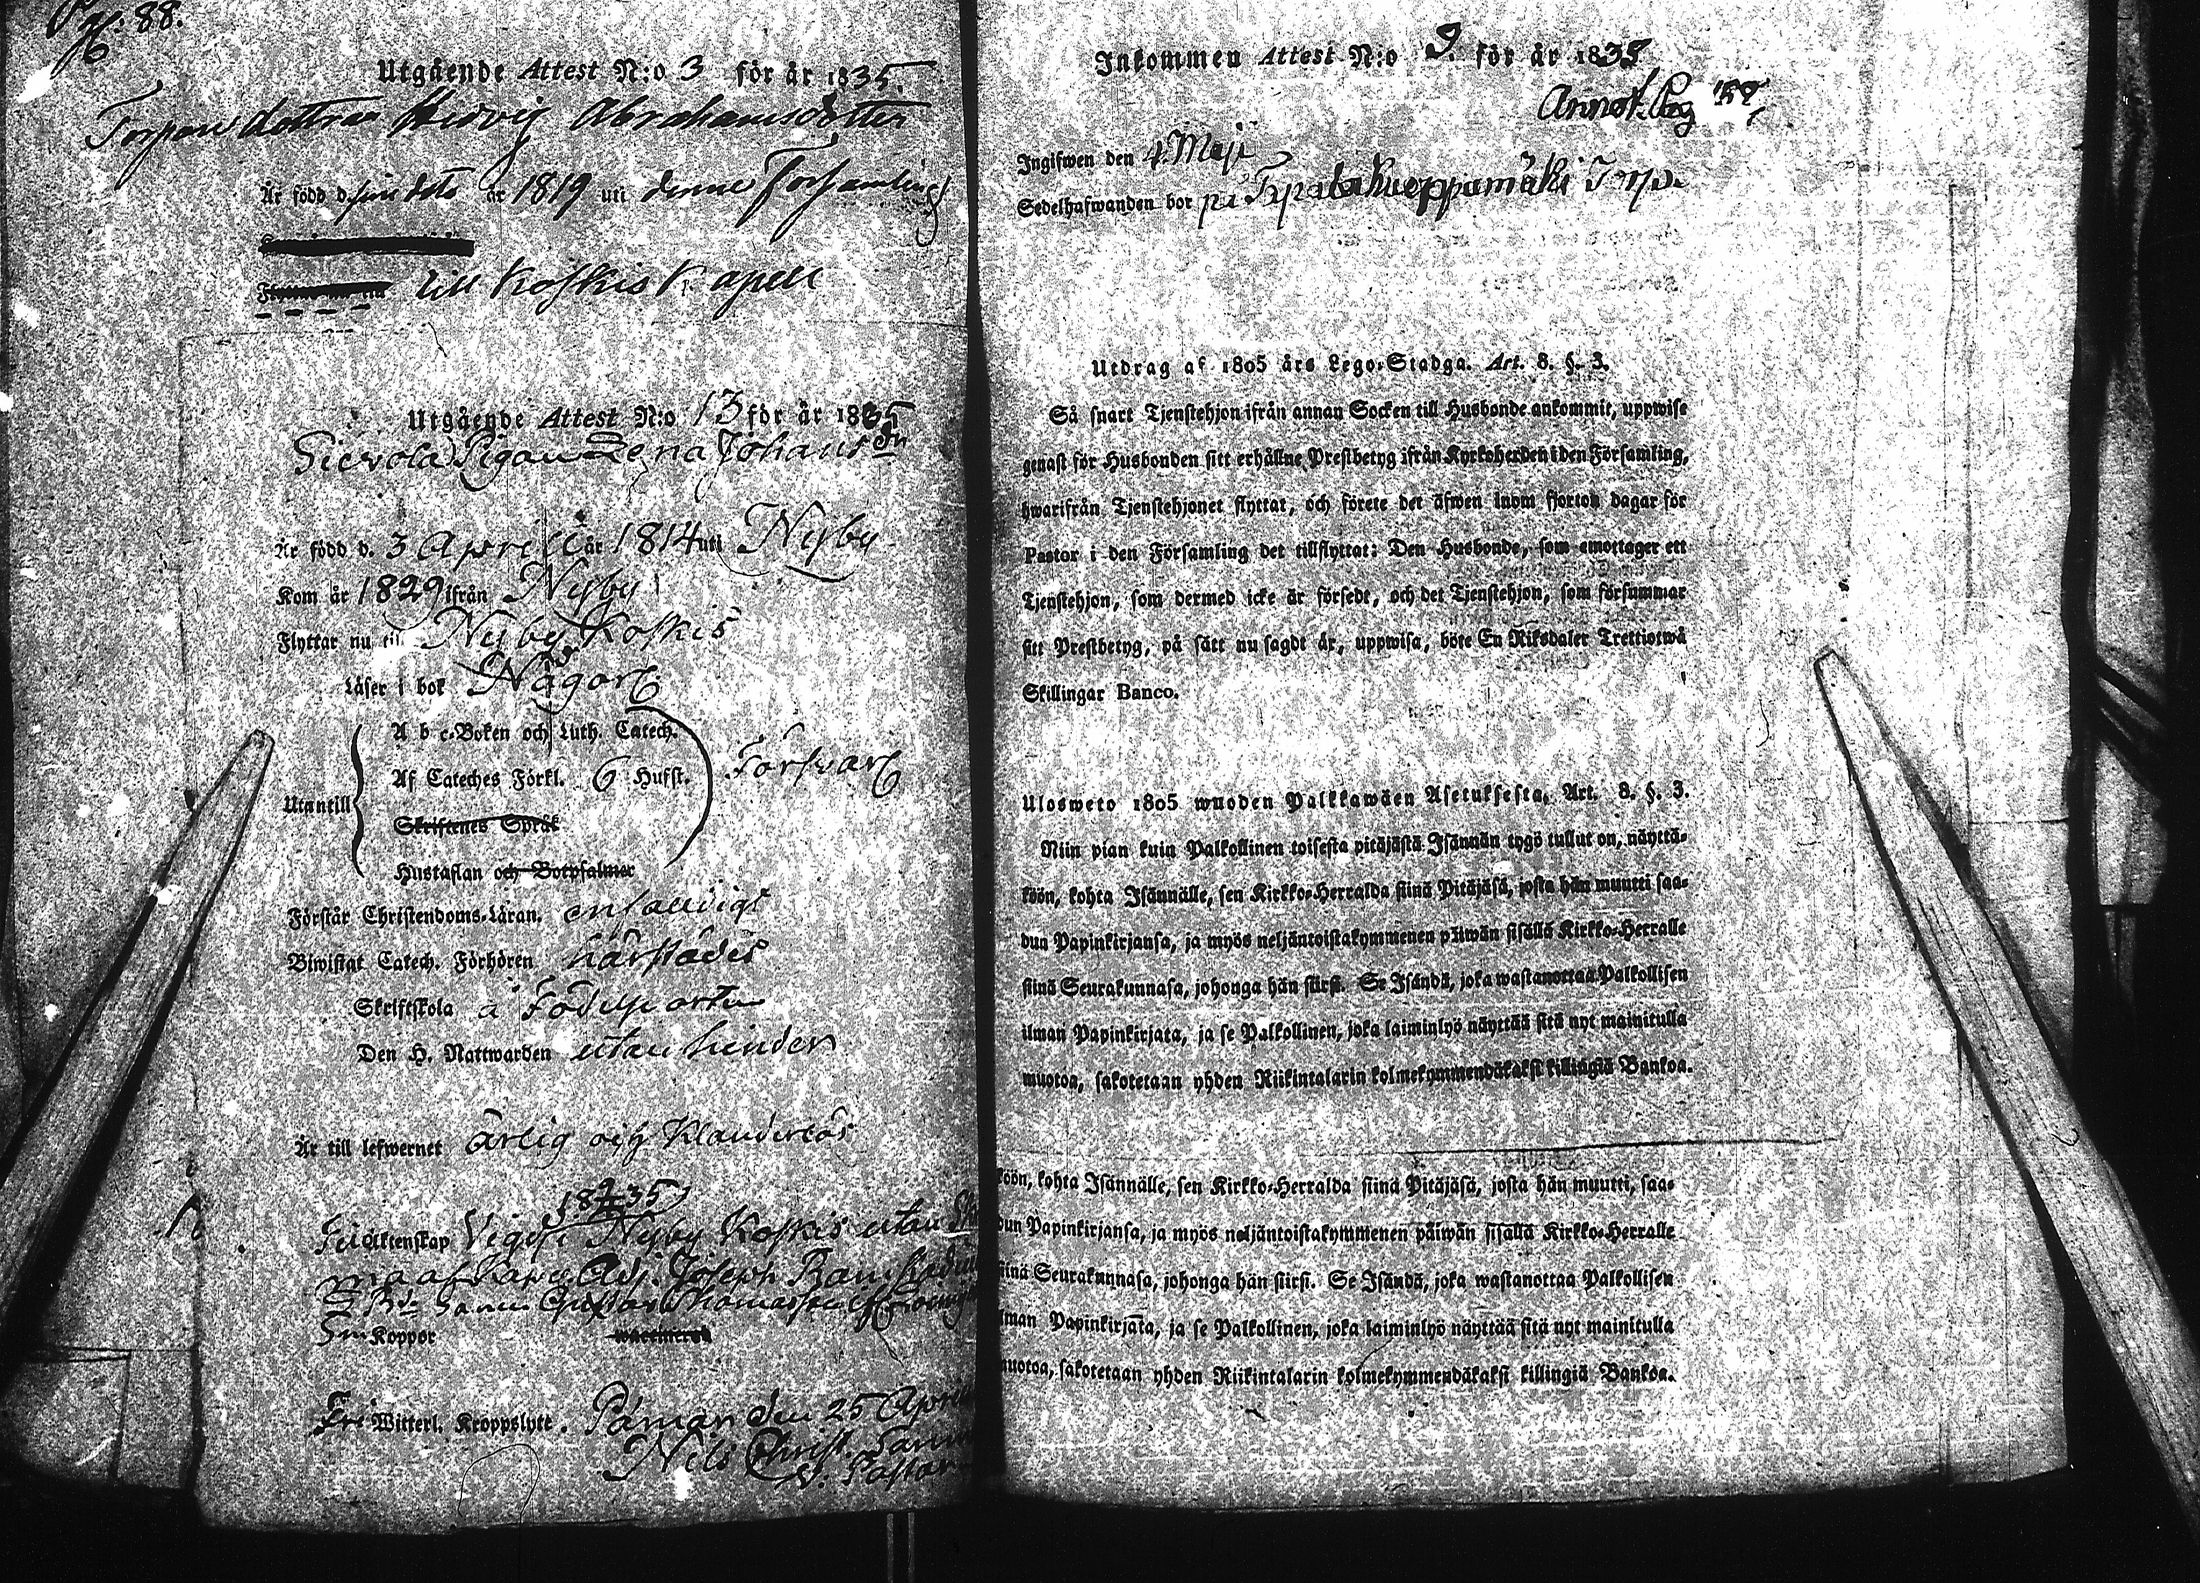 Pag. 88.
Utgående Attest N:o 3 för år 1835.
Torpare dottren Hedvig Abrahamsdotter
Är född d. sine dato år 1819 uti denne Församling
till Koskis Kapell
Utgående Attest N:o 13 för år 1835
Pigan Lena Johansdr
Är född d. 3 Aprill år 1814 uti Nyby
Kom år 1829 ifrån Nyby
Flyttar nu till Nyby Koskis
Läser i bok Någorl.
A b c-Boken och Luth. Catech.
Af Cateches Förkl. 6 Hufst. Försvarl.
Utantill
Skriftenes Språk
Hustaflan och Botpsalmer
Förstår Christendoms-Läran. enfaldigt
Biwistat Catech. Förhören härstädes
Skriftskola å Födelseorten
Den H. Nattwarden utan hinder
Är till lefwernet ärlig och Klanderlös
1835
äktenskap Vigd i Nyby Koskis utan
ma af Adj. Joseph
Gustav Thomasson
Koppor waccinerad
Fri Witterl. Kroppslyte. Pämar den 25 April
Nils Christ.
V. Pastor
Inkommen Attest N:o 9. för år 1835
Annot. Pag
Ingifwen den 4. Maji
Sedelhafwanden bor på Torp.
Utdrag af 1805 års Lego-Stadga. Art. 8. §. 3.
Så snart Tjenstehjon ifrån annan Socken till Husbonde ankommit, uppwise
genast för Husbonden sitt erhållne Prestbetyg ifrån Kyrkoherden i den Församling,
hwarifrån Tjenstehjonet flyttat, och förete det äfwen inom fjorton dagar för
Pastor i den Församling det tillflyttat: Den Husbonde, som emottager ett
Tjenstehjon, som dermed icke är försedt, och det Tjenstehjon, som försummar
sitt Prestbetyg, på sätt nu sagdt är, uppwisa, böte En Riksdaler Trettiotwå
Skillingar Banco.
Ulosweto 1805 wuoden Palkkawäen Asetuksesta. Art. 8. §. 3.
Niin pian kuin Palkollinen toisesta pitäjästä Isännän tygö tullut on, näyttä-
köön, kohta Isännälle, sen Kirkko-Herralda siinä Pitäjäsä, josta hän muutti saa-
dun Papinkirjansa, ja myös neljäntoistakymmenen päiwän sisällä Kirkko-Herralle
siinä Seurakunnasa, johonga hän siirsi. Se Isändä, joka wastanottaa Palkollisen
ilman Papinkirjata, ja se Palkollinen, joka laiminlyö näyttää sitä nyt mainitulla
muotoa, sakotetaan yhden Riikintalarin kolmekymmendäkaksi killingiä Bankoa.
köön, kohta Isännälle, sen Kirkko-Herralda siinä Pitäjäsä, josta hän muutti, saa-
dun Papinkirjansa, ja myös neljäntoistakymmenen päiwän sisällä Kirkko-Herralle
siinä Seurakunnasa, johonga hän siirsi. Se Isändä, joka wastanottaa Palkollisen
ilman Papinkirjata, ja se Palkollinen, joka laiminlyö näyttää sitä nyt mainitulla
muotoa, sakotetaan yhden Riikintalarin kolmekymmendäkaksi killingiä Bankoa.